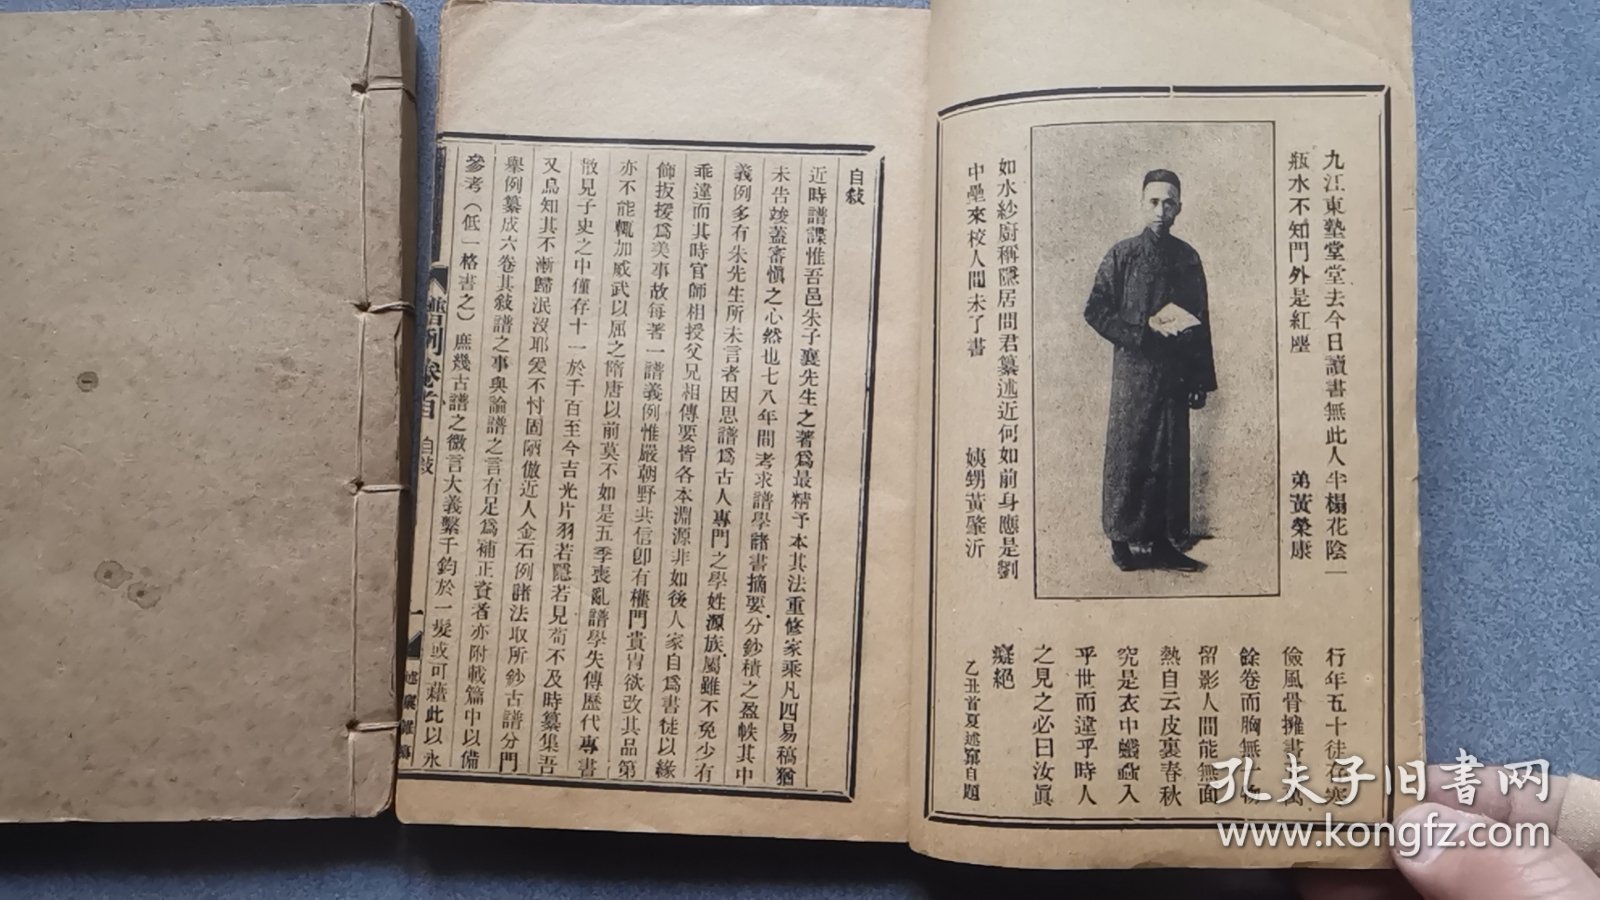 九江東塾堂堂去今日讀書無此人半榻花陰一
瓶水不知門外是紅塵
弟黃榮康
如水紗廚稱隱居問君纂述近何如前身應是劉
中壘來校人間未了書
姨甥黃肇沂
行年五十徒存寒
儉風骨擁書
餘卷而胸無一物
留影人間能無面
熱自云皮裏春秋
究是衣中蟣蝨入
乎世而違乎時人
之見之必曰汝真
癡絕
乙丑首夏述窠自題
自敍
近時譜諜惟吾邑朱子襄先生之著爲最精予本其法重修家乘凡四易稿猶
未告竣蓋審愼之心然也七八年間考求譜學諸書摘要分鈔積之盈帙其中
義例多有朱先生所未言者因思譜爲古人專門之學姓源族屬雖不免少有
乖違而其時官師相授父兄相傳要皆各本淵源非如後人家自爲書徒以緣
飾扳援爲美事故每著一譜義例惟嚴朝野共信卽有權門貴胄欲改其品第
亦不能輒加威武以屈之隋唐以前莫不如是五季喪亂譜學失傳歷代專書
散見子史之中僅存十一於千百至今吉光片羽若隱若見苟不及時纂集吾
又烏知其不漸歸泯沒耶爰不忖固陋倣近人金石例諸法取所鈔古譜分門
舉例纂成六卷其敍譜之事與論譜之言有足爲補正資者亦附載篇中以備
參考（低一格書之）庶幾古譜之微言大義繫千鈞於一髮或可藉此以永
譜例卷首
自敍
一
孔夫子旧書网
www.kongfz.com